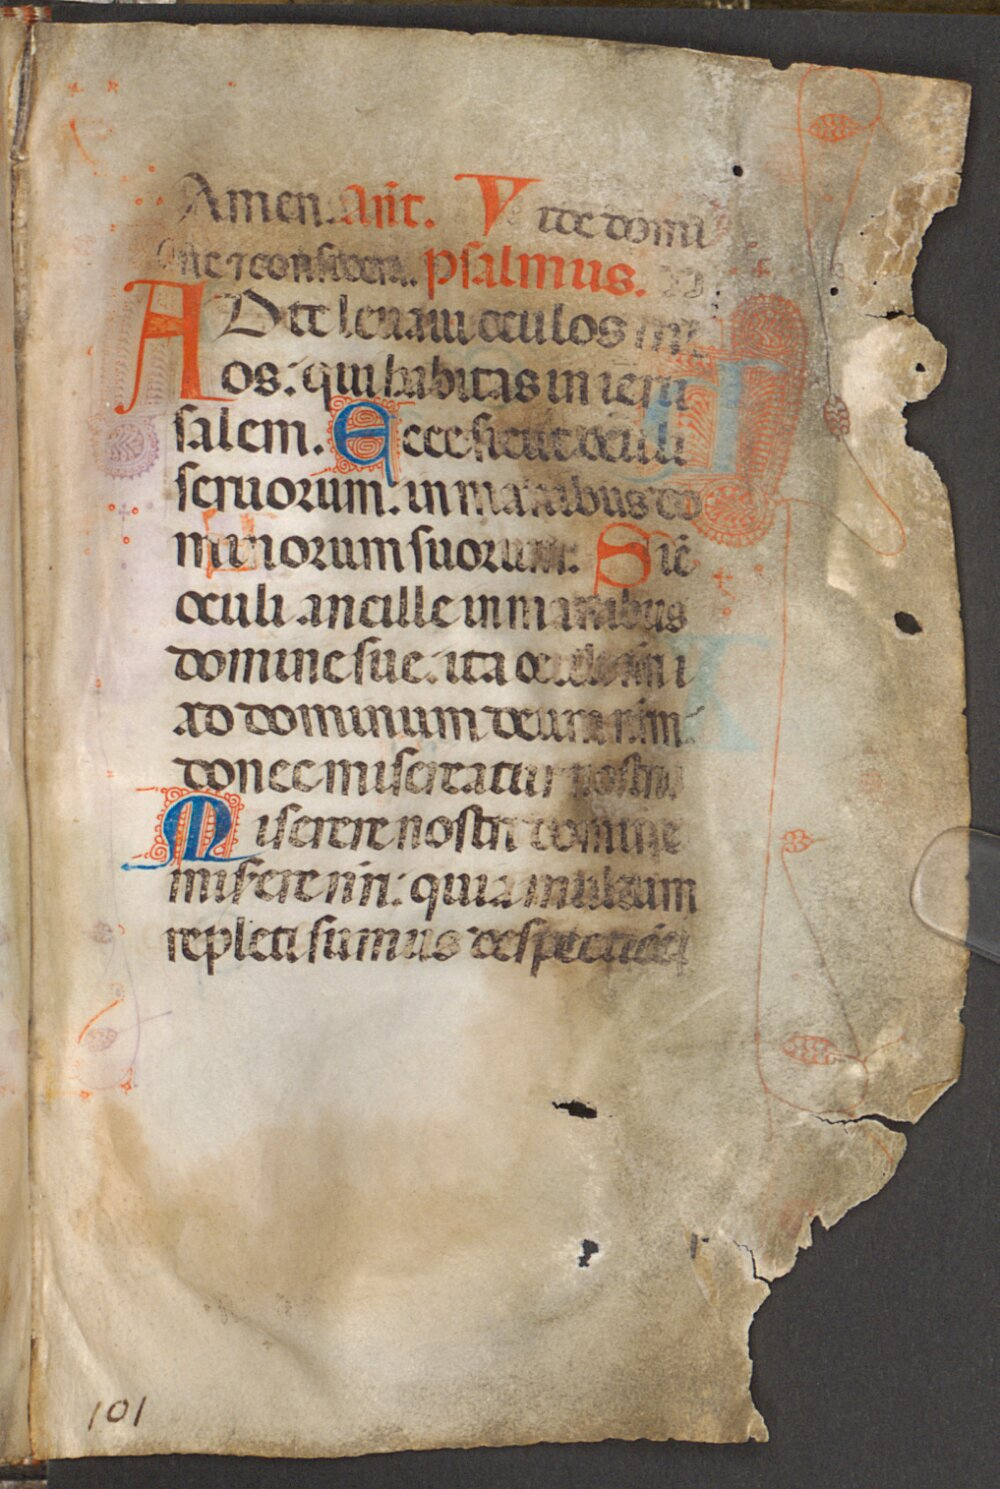 Amen. Añt. Vide domi
ne ⁊ considera. psalmus.
AD te leuaui oculos m̃
os: qui habitas in ieru
salem. Ecce sicut oculi
seruorum. in manibus do
minorum suorum. Sic̃
oculi ancille in manibus
domine sue. ita oculi nr̃i
ad dominum deum nr̃m
donec misereatur nostri
Miserere nostri domine
miserere nr̃i: quia multum
repleti sumus despectioe
101